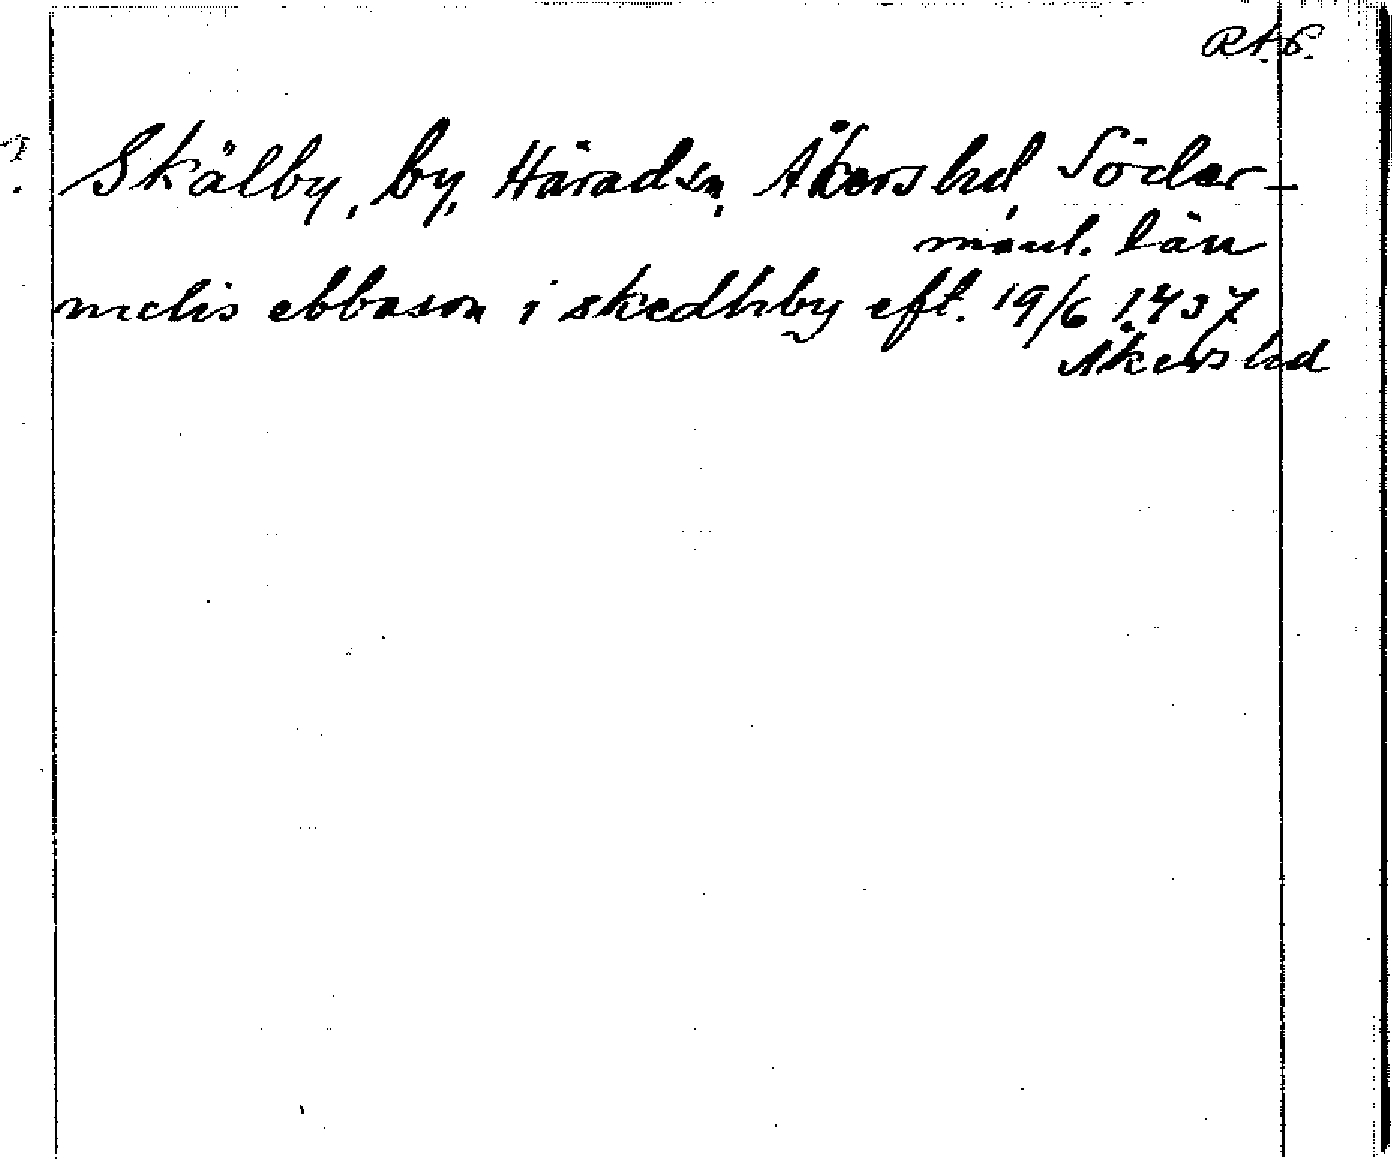 RAP.
Skälby, by, Härads sn, Åkers hd, Söder-
manl. län
melis ebbason i skedhby eft. 19/6 1437
Åkers hd